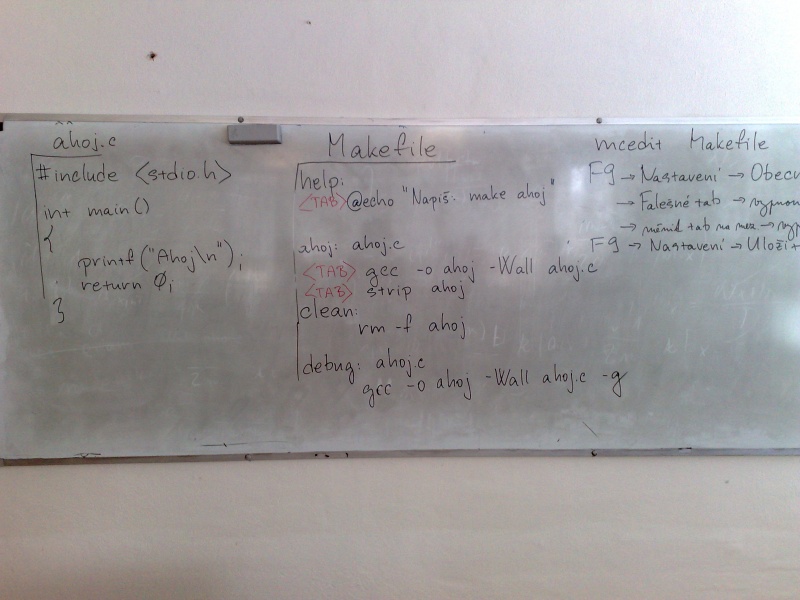 ahoj.c
#include <stdio.h>
int main()
{
printf("Ahoj\n");
return 0;
}
Makefile
help:
<TAB>@echo "Napiš: make ahoj"
ahoj: ahoj.c
<TAB> gcc -o ahoj -Wall ahoj.c
<TAB> strip ahoj
clean:
rm -f ahoj
debug: ahoj.c
gcc -o ahoj -Wall ahoj.c -g
mcedit Makefile
F9 → Nastavení → Obecn
→ Falešné tab → vypnou
→ tab na mez → vyp
F9 → Nastavení → Uloži